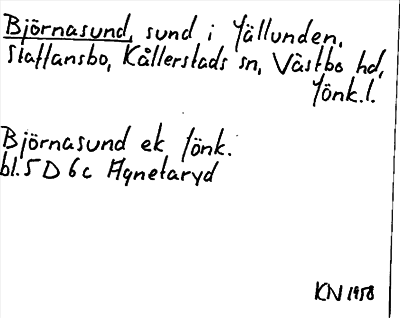 Björnasund, sund i Fällunden,
Staffansbo, Kållerstads sn, Västbo hd,
Jönk.l.
Björnasund ek Jönk.
bl. 5 D 6 c Agnetaryd
KN 1958